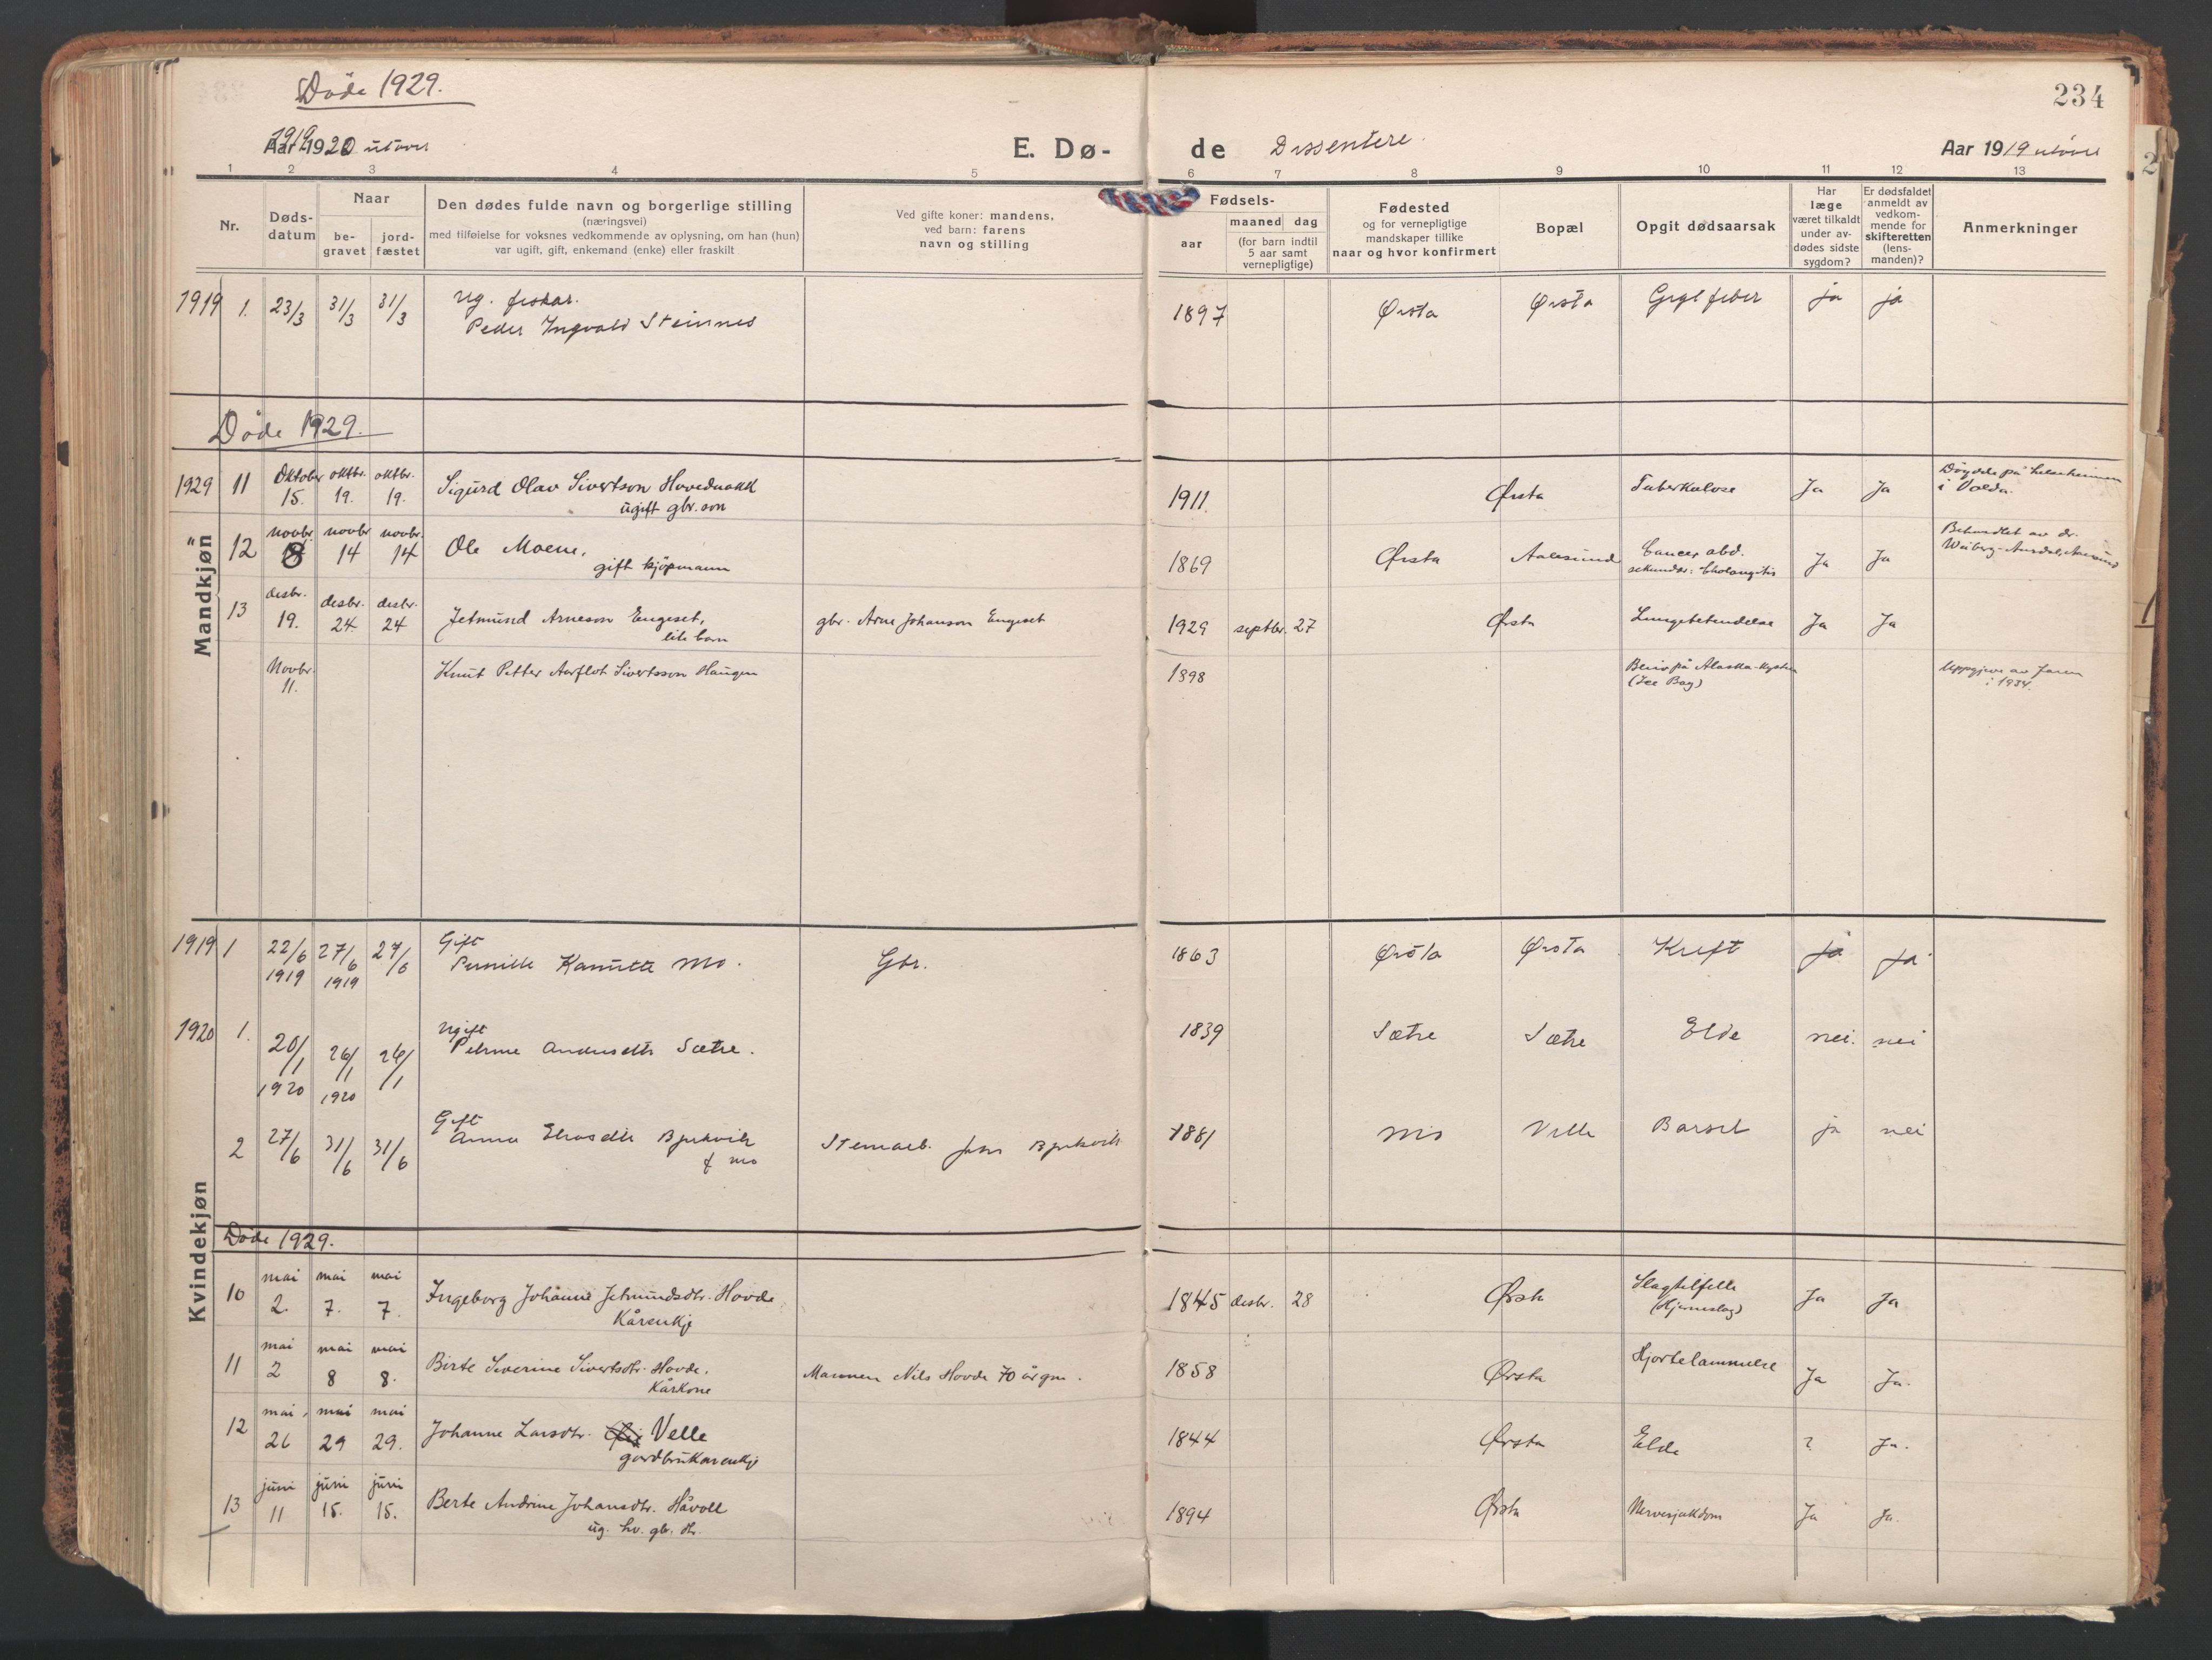 Døde 1929.
234
1919
Aar 1920 utover
E. Dø-
de
Dissentere.
Aar 1919 utover
1 2 3 4 5 6 7 8 9 10 11 12 13
Nr.
Døds-
datum
Naar
be-
gravet
jord-
fæstet
Den dødes fulde navn og borgerlige stilling
(næringsvei)
med tilføielse for voksnes vedkommende av oplysning, om han (hun)
var ugift, gift, enkemand (enke) eller fraskilt
Ved gifte koner: mandens,
ved barn: farens
navn og stilling
Fødsels-
aar
maaned dag
(for barn indtil
5 aar samt
vernepligtige)
Fødested
og for vernepligtige
mandskaper tillike
naar og hvor konfirmert
Bopæl
Opgit dødsaarsak
Har
læge
været tilkaldt
under av-
dødes sidste
sygdom?
Er dødsfaldet
anmeldt av
vedkom-
mende for
skifteretten
(lens-
manden)?
Anmerkninger
Mandkjøn
1919 1. 23/3 31/3 31/3 Ug. fiskar. Peder Ingvald Steinnes 1897 Ørsta Ørsta ja ja
Døde 1929.
1929 11 Oktober 15. oktbr. 19. oktbr. 19. Sigurd Olav Sivertson Hovednakk 1911. Ørsta Tuberkulose Ja Ja
ugift gbr. son
i Volda.
" 12 novbr. 8 novbr 14 novbr. 14 Ole Moene, 1869 Ørsta Aalesund Cancer abd. Ja Ja Behandlet av dr.
gift kjøpmann sekundær: Cholangitis
13 desbr. 19. desbr. 24. desbr. 24 Jetmund Arneson Engeset, gbr. Arne Johanson Engeset 1929 septbr. 27 Ørsta Lungebetendelse Ja Ja
lite barn
Novbr. 11. Knut Petter Aarflot Sivertsson Haugen 1898 på Alaska-kysten
(Ice Bay)
Uppgjeve av faren
i 1934.
Kvindekjøn
1919 1 22/6 1919 27/6 1919 27/6 Gift Pernille Kanutte Mo. Gbr. 1863 Ørsta Ørsta Kreft ja ja
1920 1. 20/1 1920 26/1 1920 26/1 Ugift Andersdtr Sætre. 1839 Sætre Sætre Elde nei. nei
2 27/6 31/6 31/6 Gift Anna Eliasdtr Bjerkvik Jens Bjerkvik 1881 Mo Velle Barsel ja nei
f Mo
Døde 1929.
10 mai 2. mai 7. mai 7. Ingeborg Johanne Jetmundsdtr. Hovde 1845 desbr. 28 Ørsta Slagtilfelle Ja Ja
Kårenkje (Hjerneslag)
11 mai 2 mai 8 mai 8. Birte Severine Sivertsdtr. Hovde. Mannen Nils Hovde 70 år gm. 1858 Ørsta Hjertelammelse Ja Ja.
Kårkone
12 mai 26 mai 29 mai 29. Johanne Larsdtr. Velle 1844 Ørsta Elde ? Ja.
gardbrukarenkje
13 juni 11 juni 15. juni 15. Berte Andrine Johansdtr. Håvoll 1894 Ørsta Nervesjukdom Ja Ja.
ug. hv. gbr. dtr.